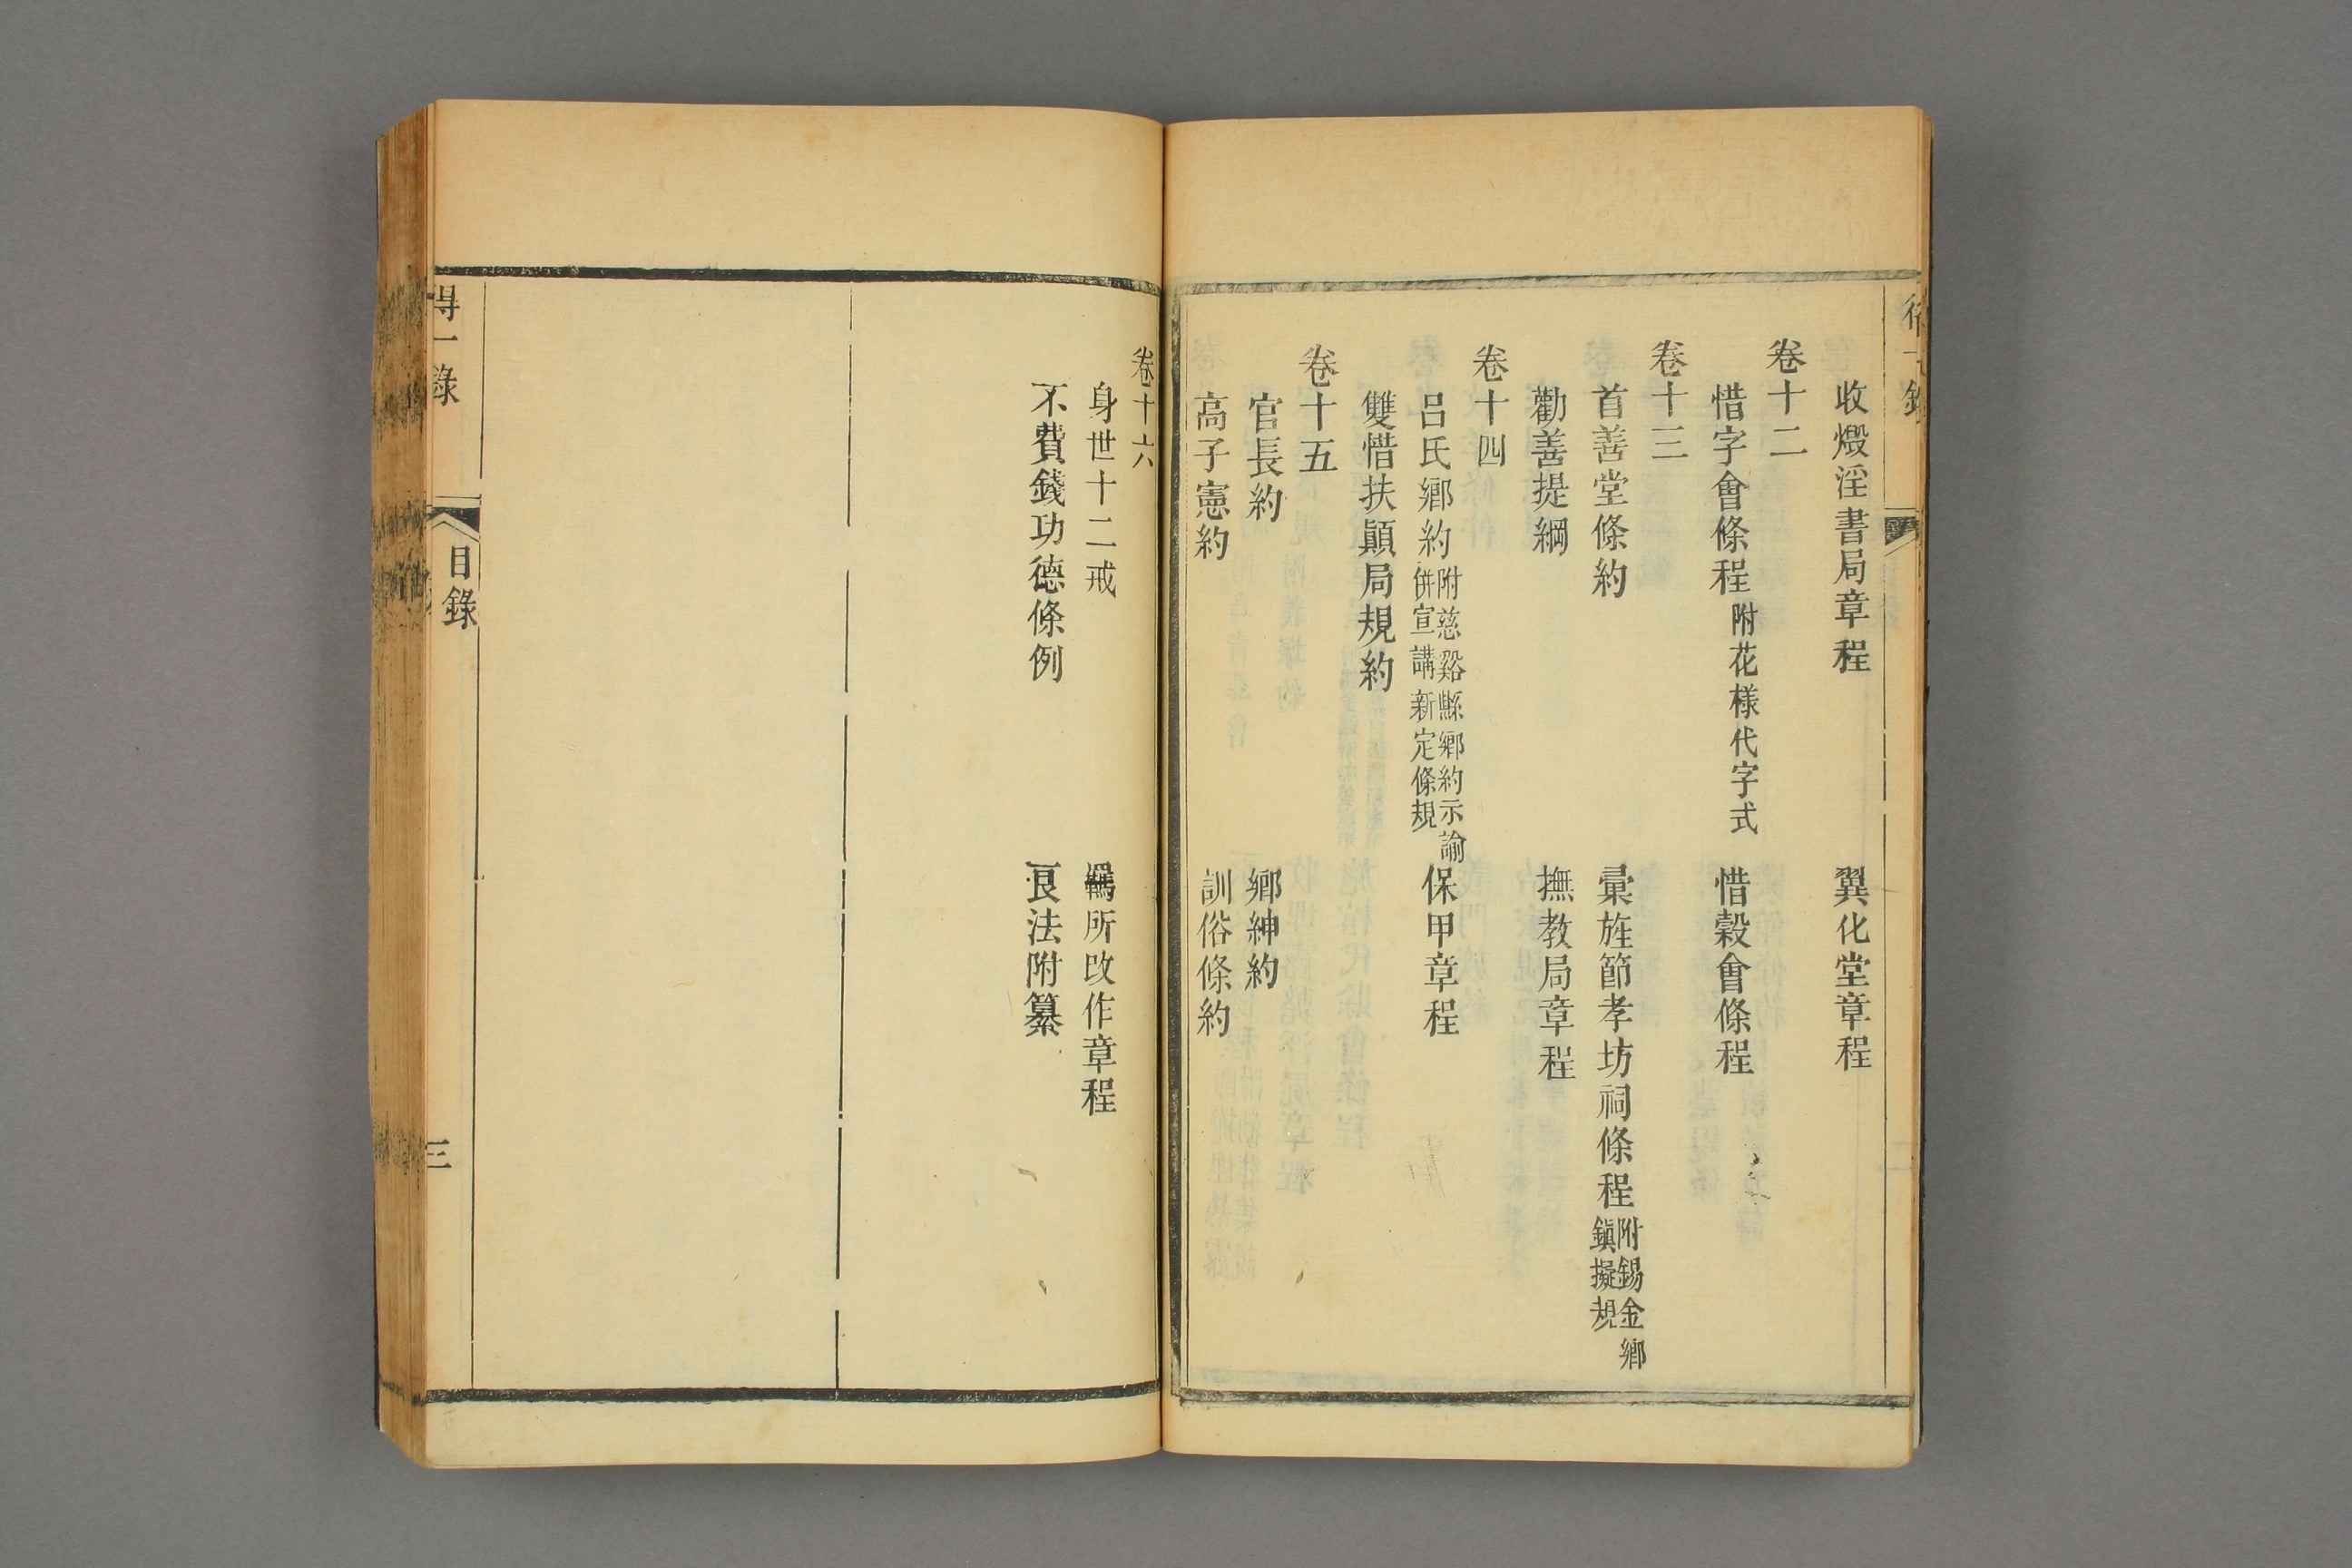 收燬淫書局章程　翼化堂章程
卷十二
惜字會條程 附花樣代字式　惜穀會條程
卷十三
首善堂條約　彙旌節孝坊祠條程 附錫金鄉鎮擬規
勸善提綱　撫教局章程
卷十四
呂氏鄉約 附慈谿縣鄉約示諭併宣講新定條規　保甲章程
雙惜扶顚局規約
卷十五
官長約　鄉紳約
高子憲約　訓俗條約
卷十六
身世十二戒　羈所改作章程
不費錢功德條例　良法附纂
得一錄
目錄
三